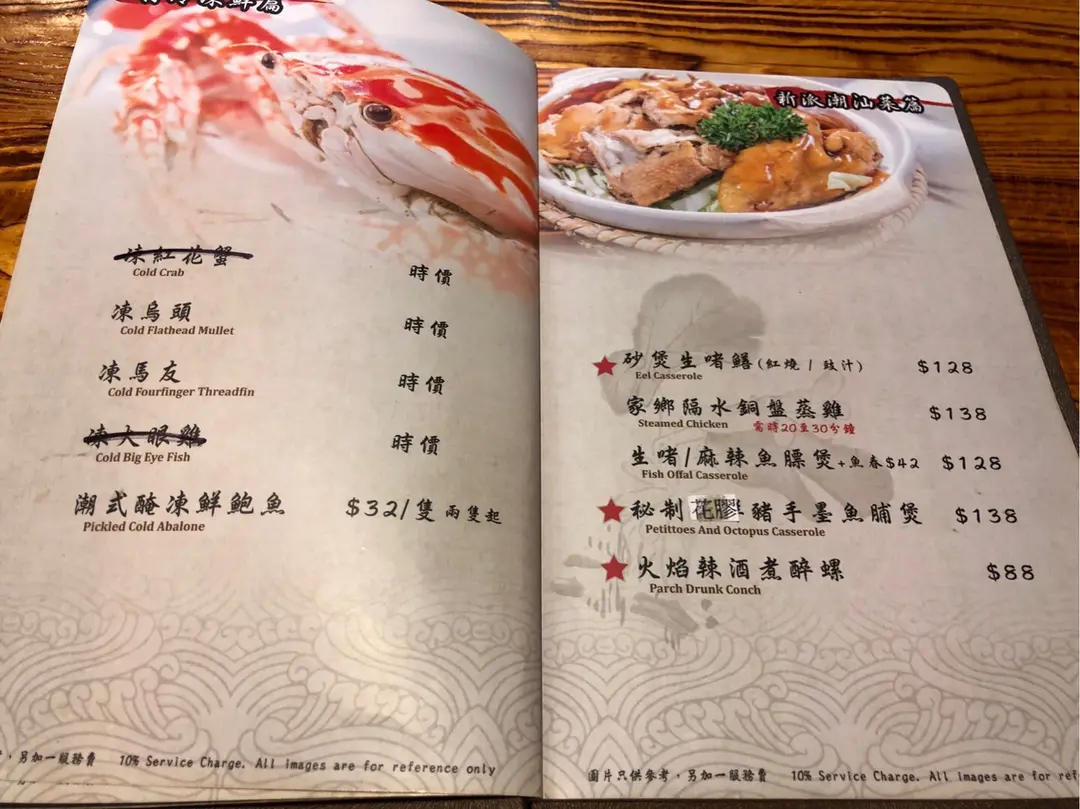 凍紅花蟹 時價
Cold Crab
凍烏頭 時價
Cold Flathead Mullet
凍馬友 時價
Cold Fourfinger Threadfin
凍大眼雞 時價
Cold Big Eye Fish
潮式醃凍鮮鮑魚 $32/隻 兩隻起
Pickled Cold Abalone
，另加一服務費 10% Service Charge. All images are for reference only
新派潮汕菜篇
砂煲生啫鱔(紅燒/豉汁) $128
Eel Casserole
家鄉隔水銅盤蒸雞 $138
Steamed Chicken 需時20至30分鐘
生啫/麻辣魚膘煲+魚春$42 $128
Fish Offal Casserole
秘制花膠豬手墨魚脯煲 $138
Petittoes And Octopus Casserole
火焰辣酒煮醉螺 $88
Parch Drunk Conch
圖片只供參考，另加一服務費 10% Service Charge. All images are for ref